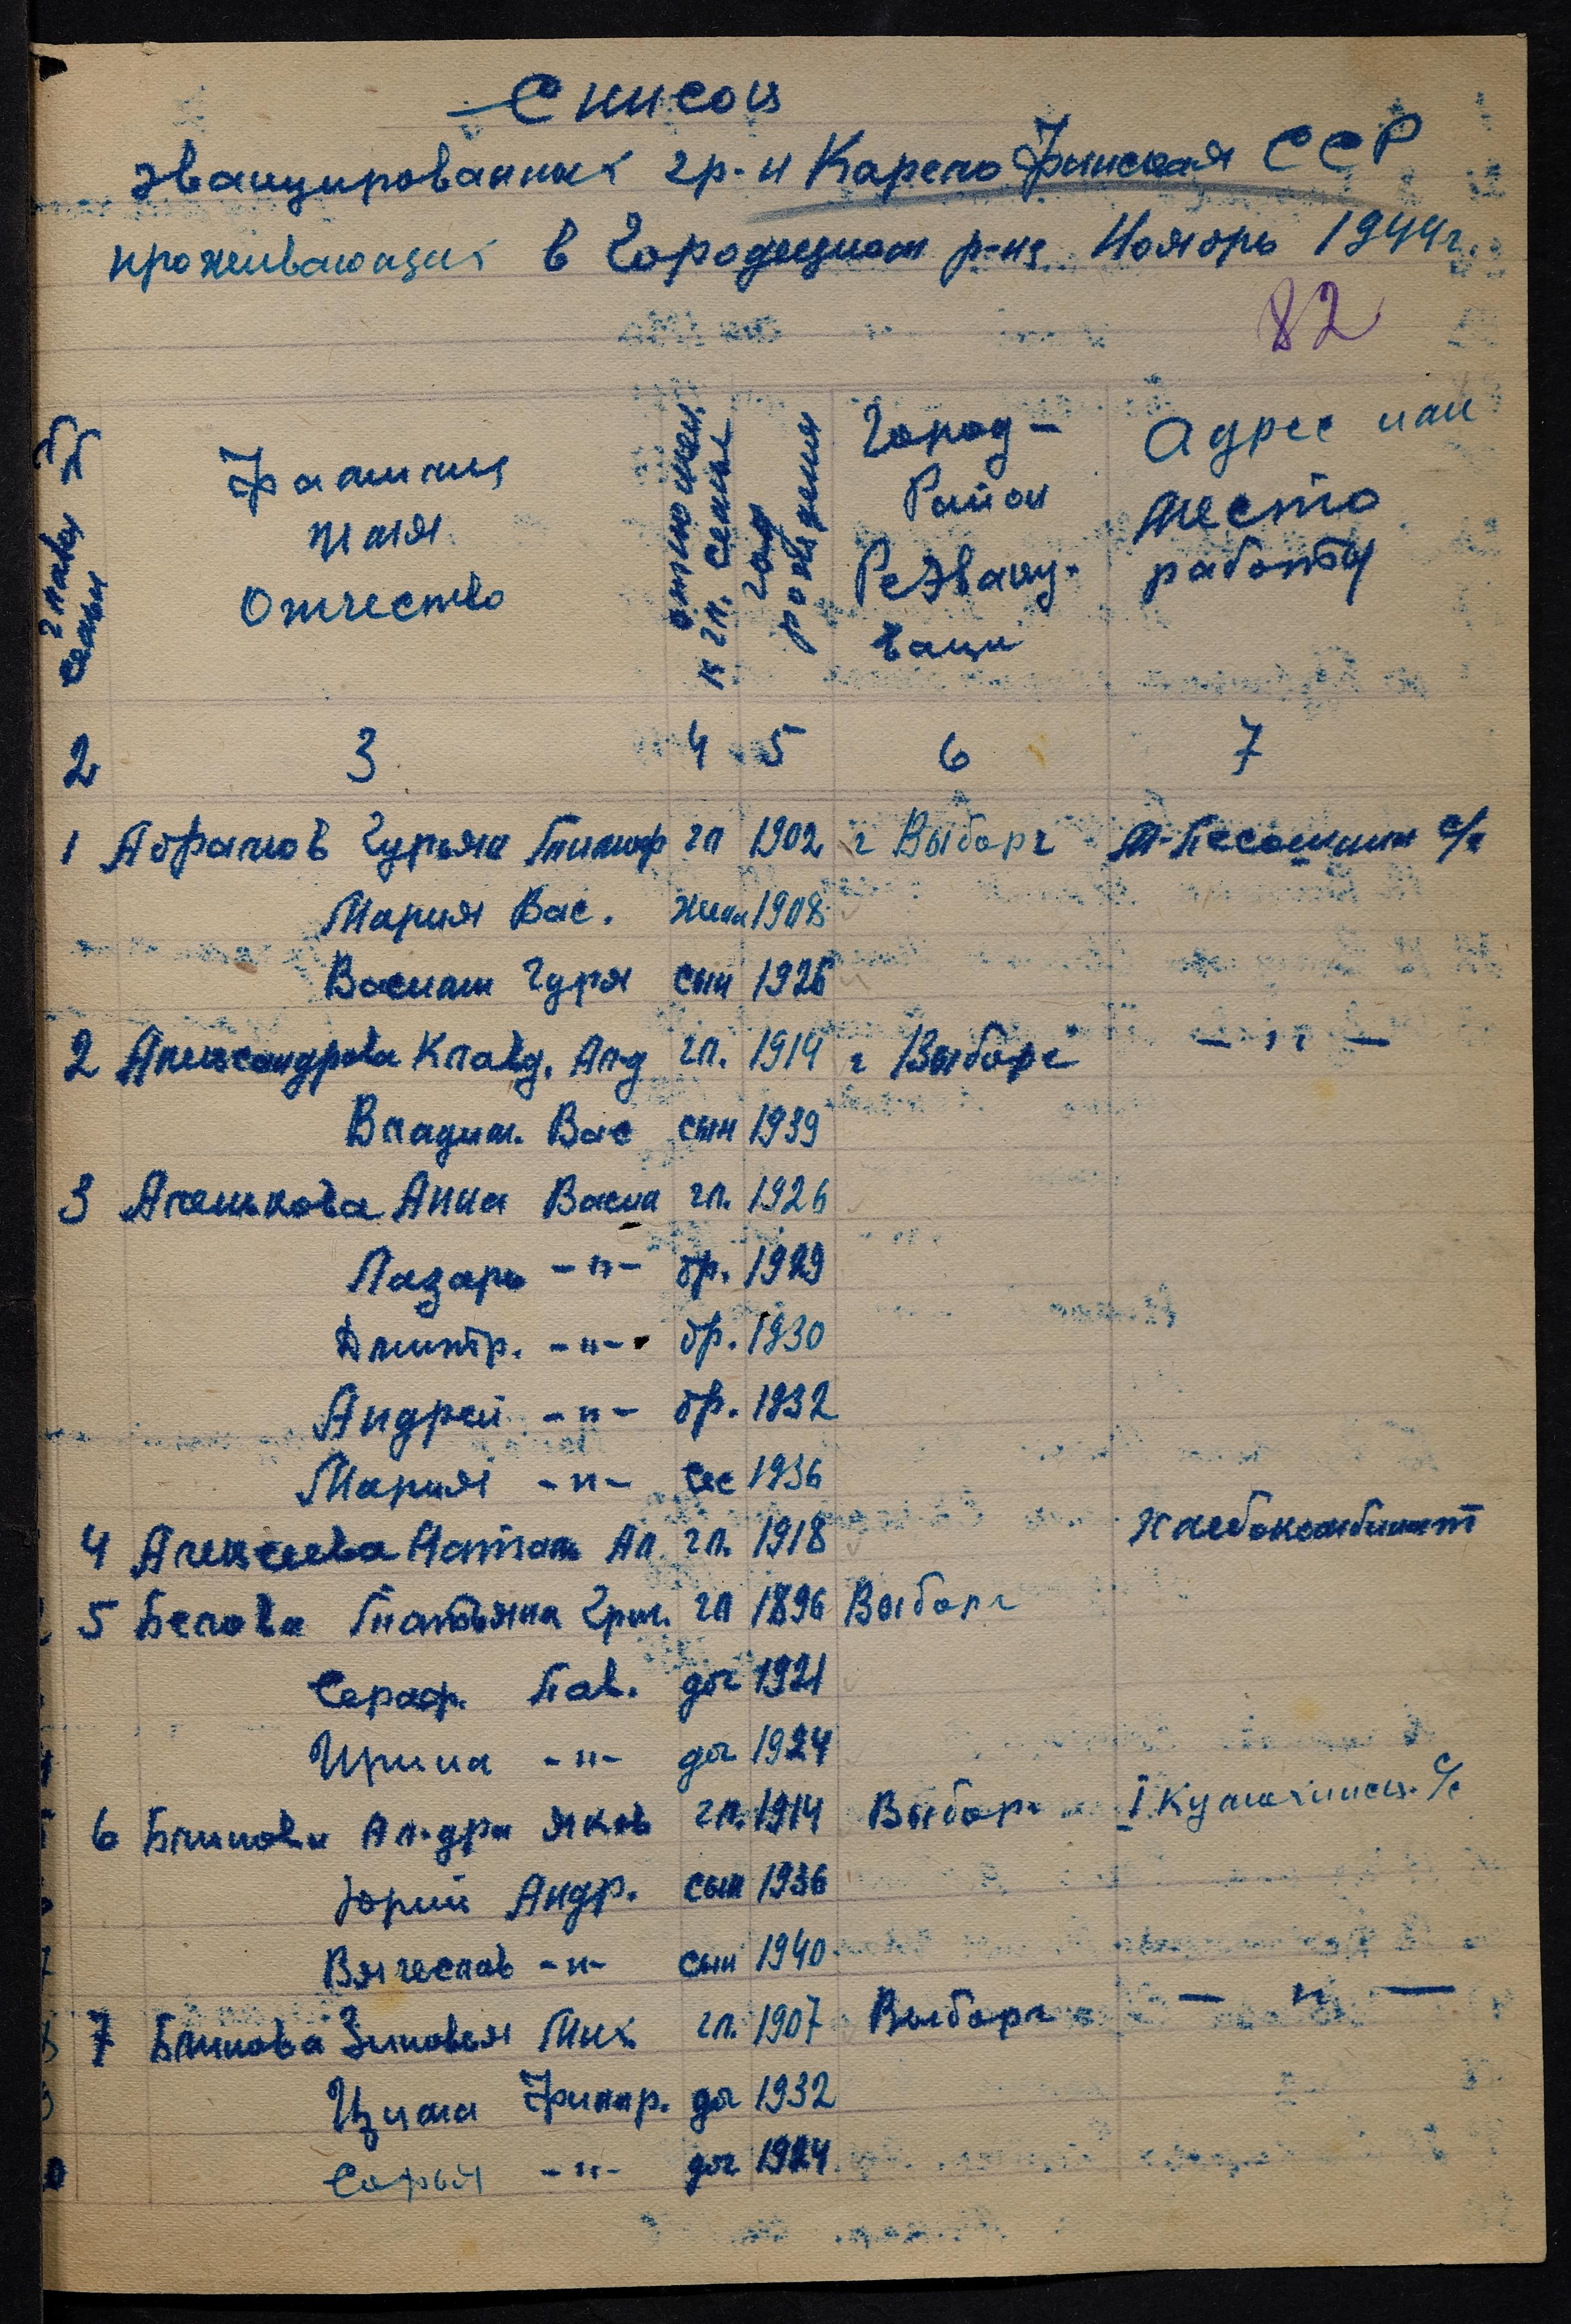 Список
эвакуированных гр-н Карело Финская ССР
проживающих в Городецком р-не Ноябрь 1944 г.
82
№№ главы семьи
Фамилия
имя
Отчество
отношен. к гл. семьи
год рождения
Город -
Район
Реэваку-
ваци
Адрес или
место
работы
2 3 4 5 6 7
1 Абрамов Гурьян Тимоф гл 1902 г Выборг М-Песошнин с/с
Мария Вас. жена 1908
Василий Гурья сын 1926
2 Александрова Клавд. Ал-д гл. 1914 г Выборг — " —
Владим. Вас сын 1939
3 Аленькова Анна Васил гл. 1926
Лазарь -"- бр. 1929
Дмитр. -"- бр. 1930
Андрей -"- бр. 1932
Мария -"- сес 1936
4 Алексеева Натал Ал. гл. 1918 хлебокомбинат
5 Белова Татьяна Григ. гл 1896 Выборг
Сераф. Пав. доч 1921
Ирина -"- доч 1924
6 Блинова Ал-дра Яков гл. 1914 Выборг I Кумохинск. с/с
Юрий Андр. сын 1936
Вячеслав -"- сын 1940
7 Блинова Зиновья Мих гл. 1907 Выборг — " —
Филар. доч 1932
Софья -"- доч 1924